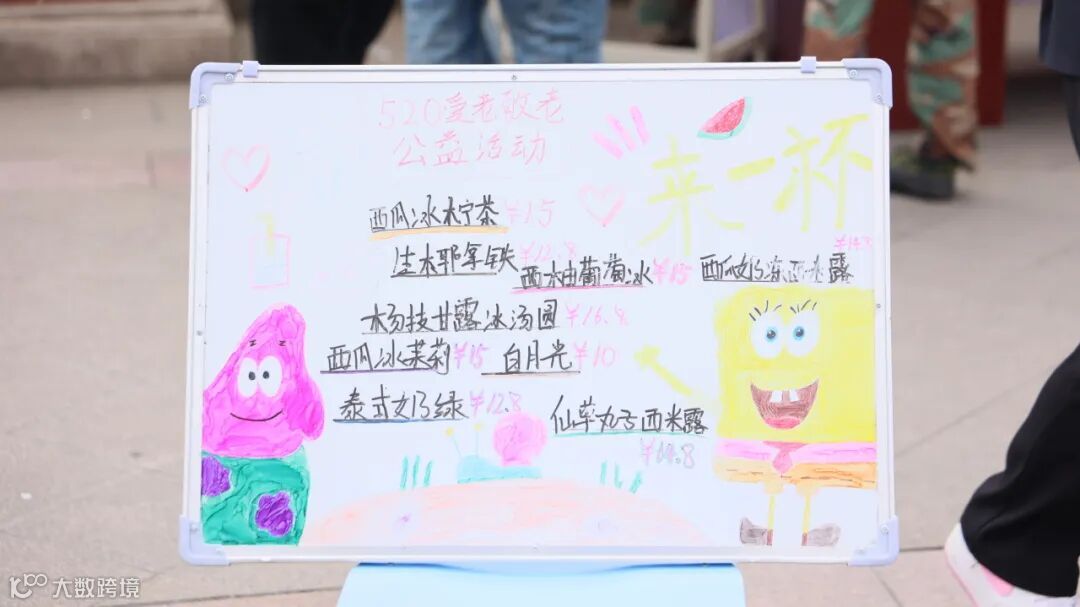 520爱老敬老
公益活动
来一杯
西瓜冰柠茶 ¥15
生木耶拿铁 ¥12.8
西柚葡萄冰 ¥15
西瓜奶冻西米露
杨技甘露冰汤圆 ¥16.8
西瓜冰茉莉 ¥15
白月光 ¥10
泰式奶绿 ¥12.8
仙草丸子西米露
大数跨境